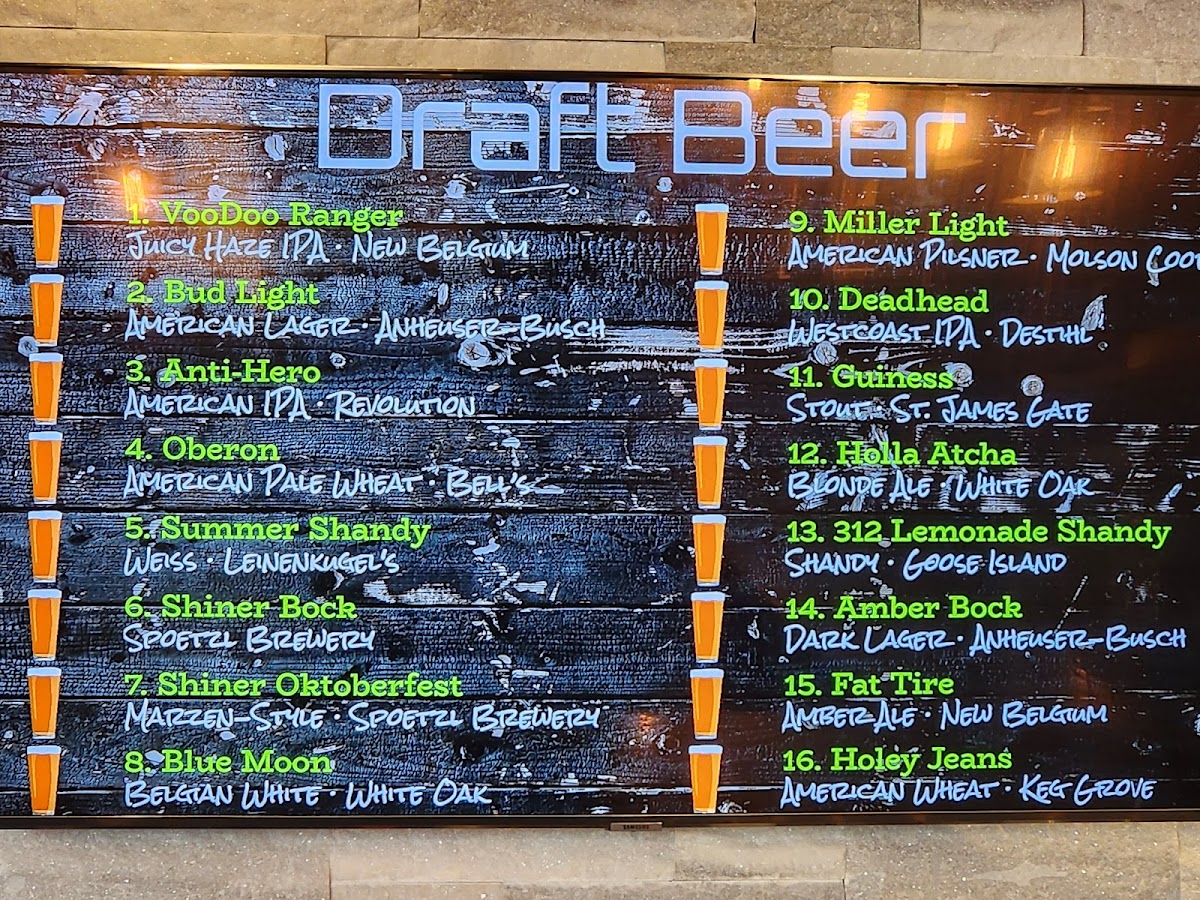 Draft Beer
1. VooDoo Ranger
Juicy Haze IPA · New Belgium
2. Bud Light
American Lager · Anheuser-Busch
3. Anti-Hero
American IPA · Revolution
4. Oberon
American Pale Wheat · Bell's
5. Summer Shandy
Weiss · Leinenkugel's
6. Shiner Bock
Spoetzl Brewery
7. Shiner Oktoberfest
Marzen-Style · Spoetzl Brewery
8. Blue Moon
Belgian White · White Oak
9. Miller Light
American Pilsner · Molson Coo
10. Deadhead
Westcoast IPA · Destihl
11. Guiness
Stout · St. James Gate
12. Holla Atcha
Blonde Ale · White Oak
13. 312 Lemonade Shandy
Shandy · Goose Island
14. Amber Bock
Dark Lager · Anheuser-Busch
15. Fat Tire
Amber Ale · New Belgium
16. Holey Jeans
American Wheat · Keg Grove
SAMSUNG